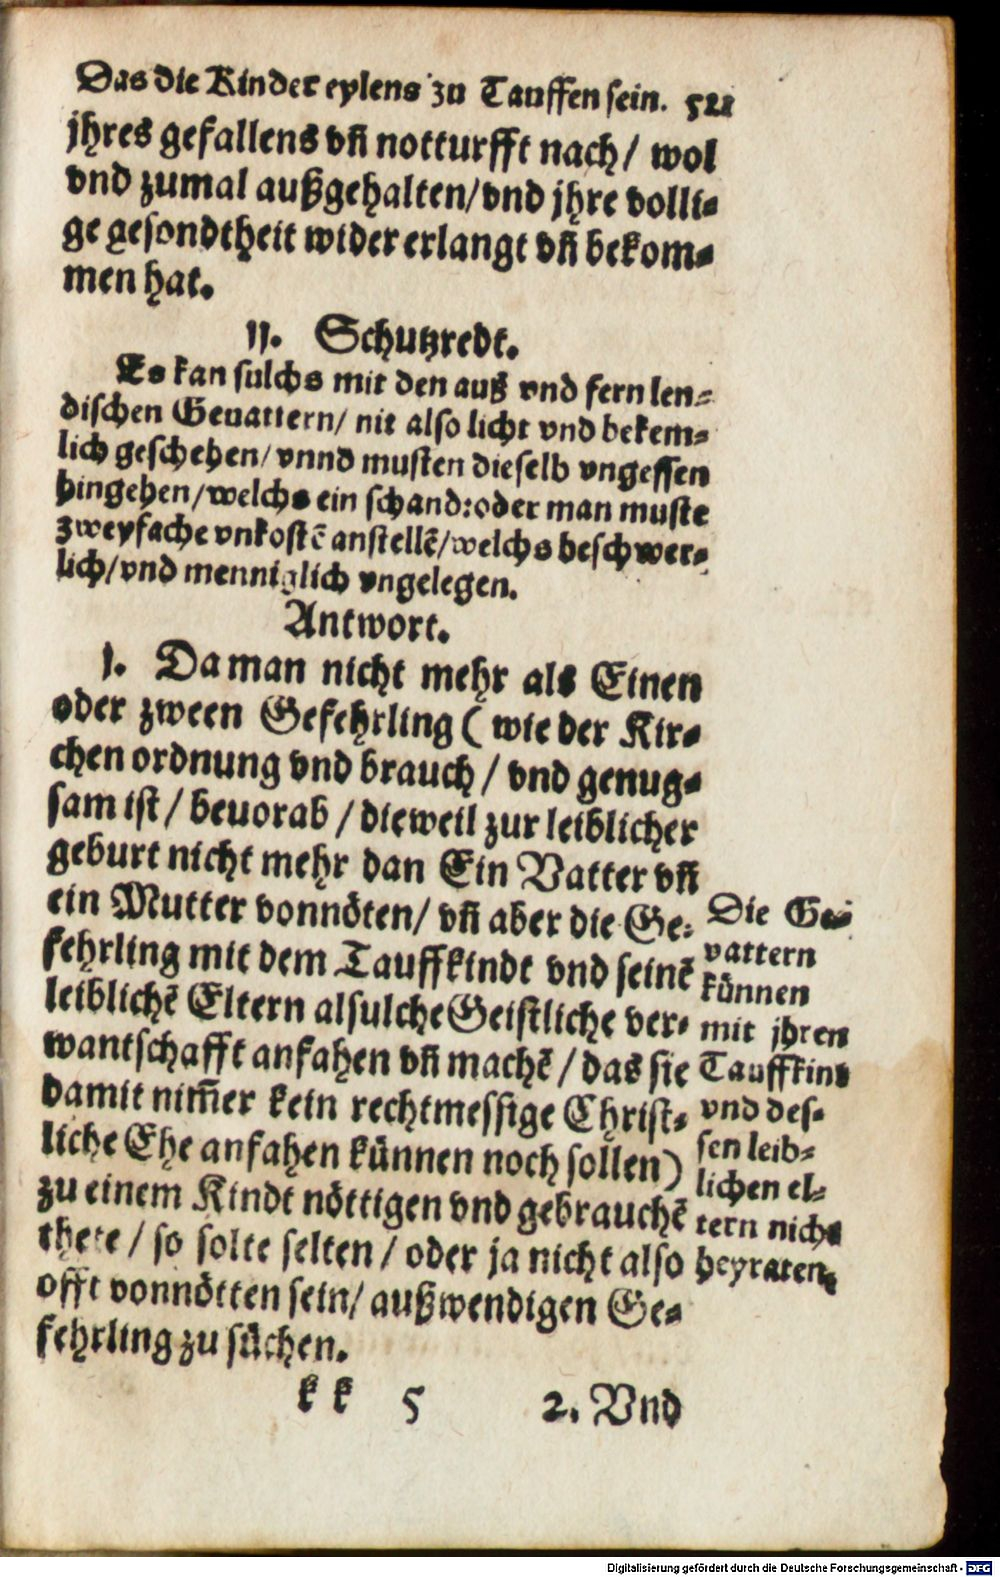 Das die Kinder eylens zu Tauffen sein. 521
jhres gefallens vñ notturfft nach / wol
vnd zumal außgehalten / vnd jhre volli⸗
ge gesondtheit wider erlangt vñ bekom⸗
men hat.
II. Schutzredt.
Es kan sulchs mit den auß vnd fern len⸗
dischen Geuattern / nit also licht vnd bekem⸗
lich geschehen / vnnd musten dieselb vngessen
hingehen / welchs ein schand: oder man muste
zweyfache vnkostē anstellē / welchs beschwer⸗
lich / vnd menniglich vngelegen.
Antwort.
I. Da man nicht mehr als Einen
oder zween Gefehrling ( wie der Kir⸗
chen ordnung vnd brauch / vnd genug⸗
sam ist / beuorab / dieweil zur leiblicher
geburt nicht mehr dan Ein Vatter vñ
ein Mutter vonnöten / vñ aber die Ge⸗
fehrling mit dem Tauffkindt vnd seinē
leiblichē Eltern alsulche Geistliche ver⸗
wantschafft anfahen vñ machē / das sie
damit nim̄er kein rechtmessige Christ⸗
liche Ehe anfahen künnen noch sollen)
zu einem Kindt nöttigen vnd gebrauchē
thete / so solte selten / oder ja nicht also
offt vonnötten sein / außwendigen Ge⸗
fehrling zu süchen.
Die Ge⸗
vattern
künnen
mit jhren
Tauffkind
vnd des⸗
sen leib⸗
lichen el⸗
tern nicht
heyraten.
kk 5 2. Vnd
Digitalisierung gefördert durch die Deutsche Forschungsgemeinschaft - DFG